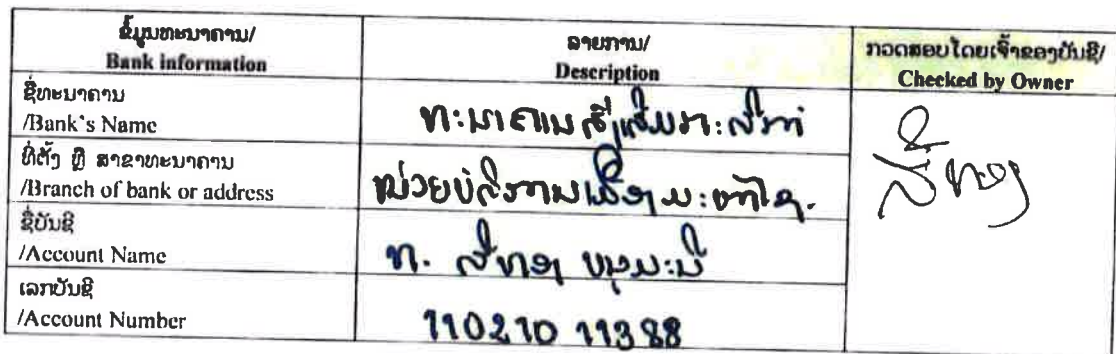 ຂໍ້ມູນທະນາຄານ/
Bank information
ລາຍການ/
Description
ກວດສອບໂດຍເຈົ້າຂອງບັນຊີ/
Checked by Owner
ຊື່ທະນາຄານ
/Bank's Name
ທະນາຄານສົ່ງເສີມກະສິກຳ
ທີ່ຕັ້ງ ຫຼື ສາຂາທະນາຄານ
/Branch of bank or address
ໜ່ວຍບໍລິການເມືອງ
ຊື່ບັນຊີ
/Account Name
ທ. ສີທອງ
ເລກບັນຊີ
/Account Number
11021011388
ສີທອງ